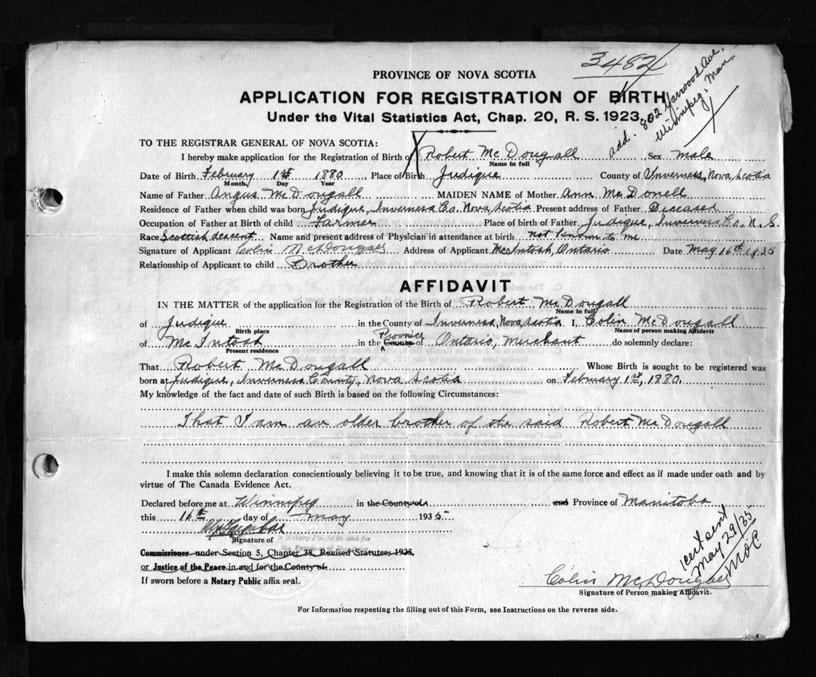 3482
PROVINCE OF NOVA SCOTIA
APPLICATION FOR REGISTRATION OF BIRTH
Under the Vital Statistics Act, Chap. 20, R. S. 1923.
add. 802 Ave. Winnipeg. Man
TO THE REGISTRAR GENERAL OF NOVA SCOTIA:
I hereby make application for the Registration of Birth of Robert McDougall Sex male
Name in full
Date of Birth February 1st 1880 Place of Birth Judique County of Inverness, Nova Scotia
Month/ Day Year
Name of Father Angus McDougall MAIDEN NAME of Mother Ann McDonell
Residence of Father when child was born Judique, Inverness Co. Nova Scotia Present address of Father Diceased
Occupation of Father at Birth of child Farmer Place of birth of Father Judique, Inverness Co. N. S.
Race Scottish descent Name and present address of Physician in attendance at birth not known to me
Signature of Applicant Colin McDougall Address of Applicant McIntosh, Ontario Date May 16th 1935
Relationship of Applicant to child Brother
AFFIDAVIT
IN THE MATTER of the application for the Registration of the Birth of Robert McDougall
Name in full
of Judique in the County of Inverness, Nova Scotia I, Colin McDougall
Birth place Name of person making Affidavit
of McIntosh in the County Province of Ontario, merchant do solemnly declare:
Present residence
That Robert McDougall Whose Birth is sought to be registered was
born at Judique, Inverness County, Nova Scotia on February 1st, 1880.
My knowledge of the fact and date of such Birth is based on the following Circumstances:
That I am an older brother of the said Robert McDougall
I make this solemn declaration conscientiously believing it to be true, and knowing that it is of the same force and effect as if made under oath and by
virtue of The Canada Evidence Act.
Declared before me at Winnipeg in the County of and Province of Manitoba
this 16th day of May 1935
Signature of
Commissioner under Section 5, Chapter 38, Revised Statutes, 1923,
or Justice of the Peace in and for the County of
If sworn before a Notary Public affix seal.
1 cert sent May 29/35 MOC
Colin McDougall
Signature of Person making Affidavit.
For Information respecting the filling out of this Form, see Instructions on the reverse side.